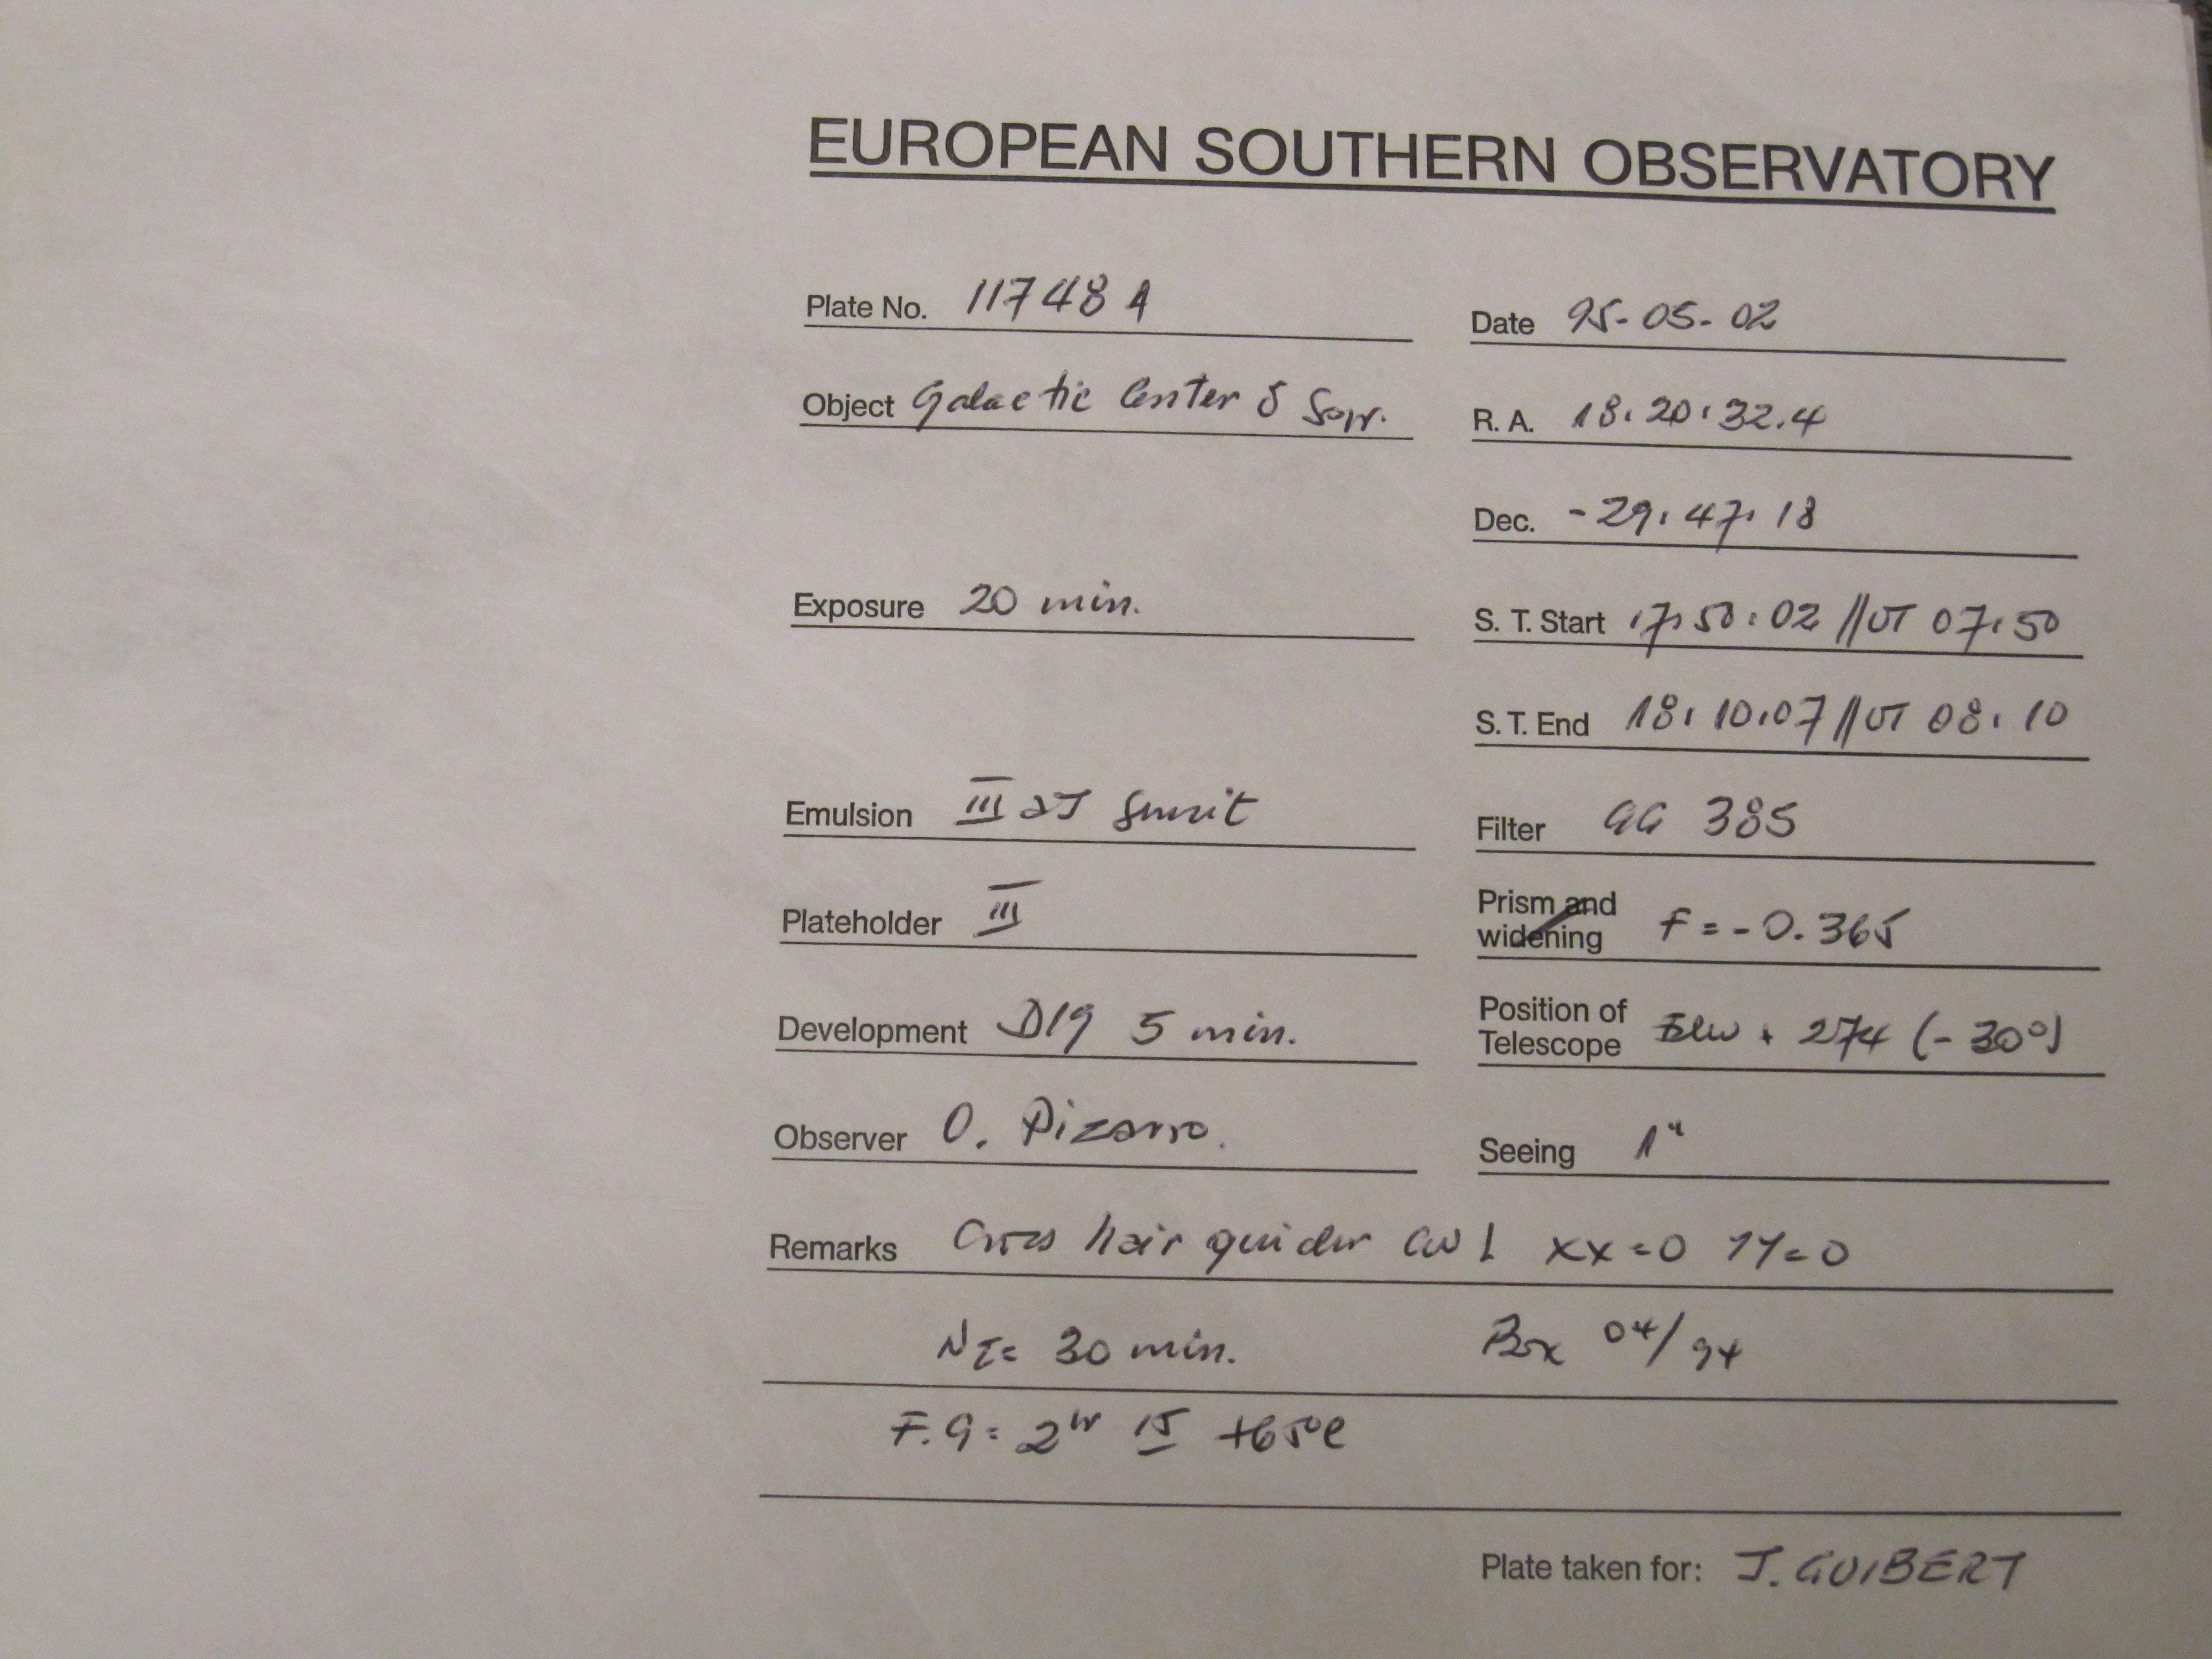 EUROPEAN SOUTHERN OBSERVATORY
Plate No. 11748 A Date 95-05-02
Object Galactic Center R. A. 18:20:32.4
Dec. -29:47:18
Exposure 20 min. S. T. Start 17:50:02 // UT 07:50
S. T. End 18:10:07 // UT 08:10
Emulsion III aJ Filter GG 385
Plateholder III Prism and widening F = -0.365
Development D19 5 min. Position of Telescope 274 (-30°)
Observer O. Pizarro. Seeing 1"
Remarks Cross hair guider XX=0 YY=0
30 min. Box 04/94
F.G = 2 hr +65°C
Plate taken for: J. GUIBERT